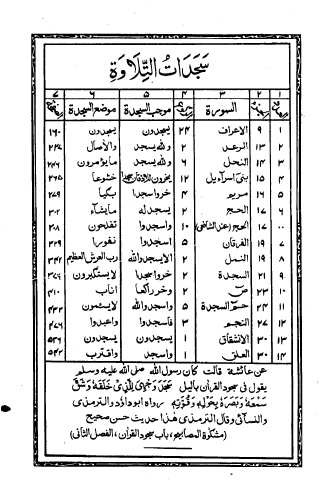 سجدات التلاوة
۱ ۲ ۳ ۴ ۵ ۶ ۷
السورة موجب السجدة موضع السجدة
۱ ۹ الاعراف ۲۴ يسجدون يسجدون ۱۶۰
۲ ۱۳ الرعد ۲ ولله يسجد والآصال
۳ ۱۴ النحل ۶ ولله يسجد مايؤمرون
۴ ۱۵ بنی اسرآءيل ۱۲ يخرون للاذقان سجدا خشوعا
۵ ۱۶ مريم ۴ خروا سجدا بكيا ۲۷۹
۶ ۱۷ الحج ۲ يسجد له مايشاء ۳۰۲
۰۰ ۱۷ الحج (عند الشافعی) ۱۰ واسجدوا تفلحون ۳۰۸
۷ ۱۹ الفرقان ۵ اسجدوا نفورا ۳۲۹
۸ ۱۹ النمل ۲ الا يسجدوا لله رب العرش العظيم
۹ ۲۱ السجدة ۲ خروا سجدا لا يستكبرون
۱۰ ۲۳ صٓ ۲ وخر راكعا اناب ۴۱۰
۱۱ ۲۴ حٰمٓ السجدة ۵ واسجدوا لله لا يسئمون
۱۲ ۲۷ النجم ۳ فاسجدوا واعبدوا
۱۳ ۳۰ الانشقاق ۱ يسجدون يسجدون ۵۳۶
۱۴ ۳۰ العلق ۱ واسجد واقترب ۵۴۳
عن عائشة قالت كان رسول الله صلى الله عليه وسلم
يقول فى سجود القرآن بالليل سَجَدَ وَجْهِىَ لِلَّذِىْ خَلَقَهُ وَشَقَّ
سَمْعَهُ وَبَصَرَهُ بِحَوْلِهِ وَقُوَّتِهِ رواه ابوداؤد والترمذى
والنسائى وقال الترمذى هذا حديث حسن صحيح
(مشكوة المصابيح، باب سجود القرآن، الفصل الثانى)